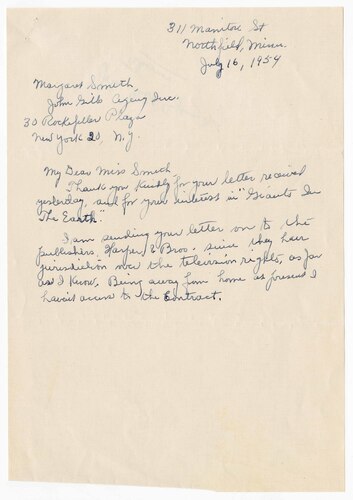 311 Manitou St
Northfield, Minn.
July 16, 1954
Margaret Smith,
John Gibbs Agency Inc.
30 Rockefeller Plaza
New York 20, N.Y.
My Dear Miss Smith
Thank you kindly for your letter received
yesterday, and for your interest in "Giants In
The Earth".
I am sending your letter on to the
publishers, Harper & Bros. since they have
jurisdiction over the television rights, as far
as I know. Being away from home at present I
haven't access to the Contract.